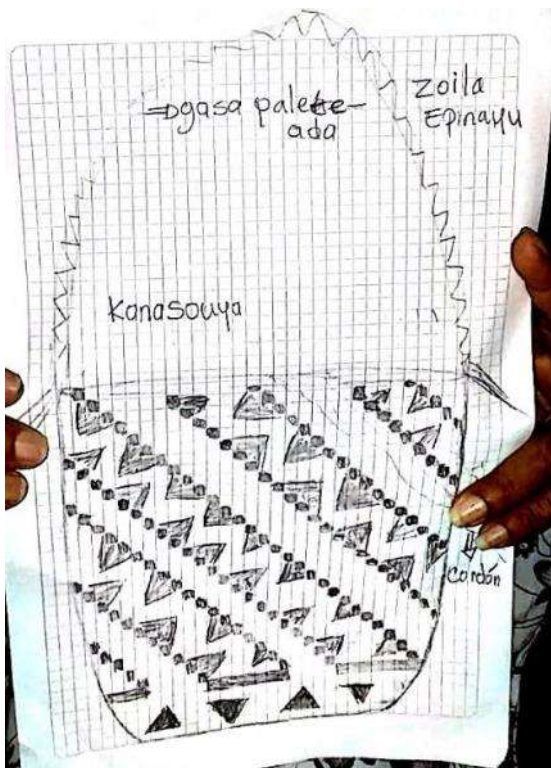 ⇒gasa palete-
ada
Zoila
Epinayu
Kanasouya
cordón